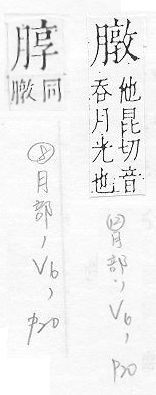 他昆切音
吞月光也
⑫月部, V6, p20
朜
同
⑧月部, V6, p20